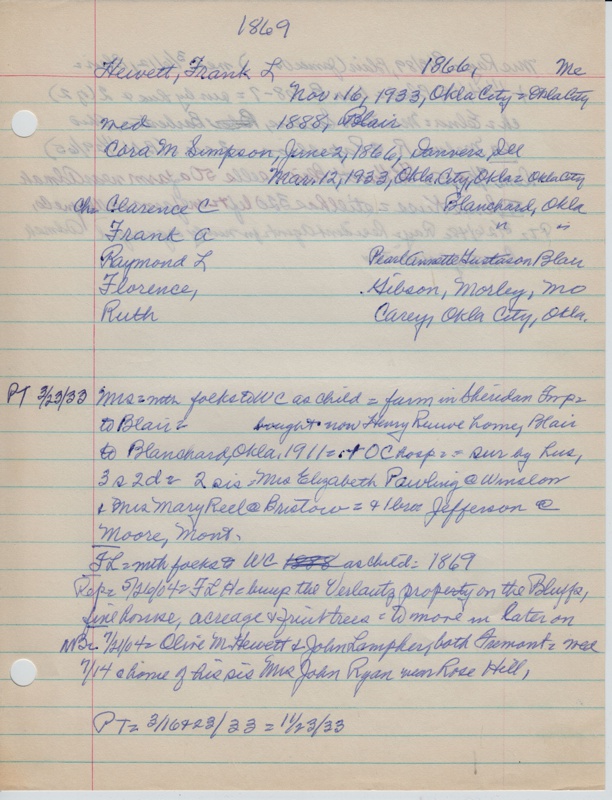 1869
Hewett, Frank L 1866, Me
Nov. 16, 1933, Okla City = Okla City
wed 1888, Blair
Cora M Simpson, June 2, 1866, Danvers, Ill
Mar. 12, 1933, Okla. City, Okla = Okla City
Ch = Clarence C Blanchard, Okla
Frank A " "
Raymond L Pearl Annette Gustason Blair
Florence, Gibson, Morley, Mo
Ruth Carey, Okla City, Okla.
PT 3/23/33 Mrs = mth folks to WC as child = farm in Sheridan Tmp =
to Blair = bought now Henry Ruwe home, Blair
to Blanchard, Okla, 1911 = + OC hosp = = sur by hus,
3 s 2 d = 2 sis = Mrs Elizabeth Pawling @ Winslow
& Mrs Mary Reel @ Bristow = & 1 bro Jefferson @
Moore, Mont.
FL = mth folks to WC as child = 1869
Rep = 5/26/04 = FLH = buys the Verlautz property on the Bluffs,
fine house, acreage & fruit trees = to move in later on
7/21/04 = Olive M. Hewett & John Lamphey, both Fremont = wed
7/14 @ home of his sis Mrs John Ryan near Rose Hill,
PT = 3/16 & 23/33 = 11/23/33